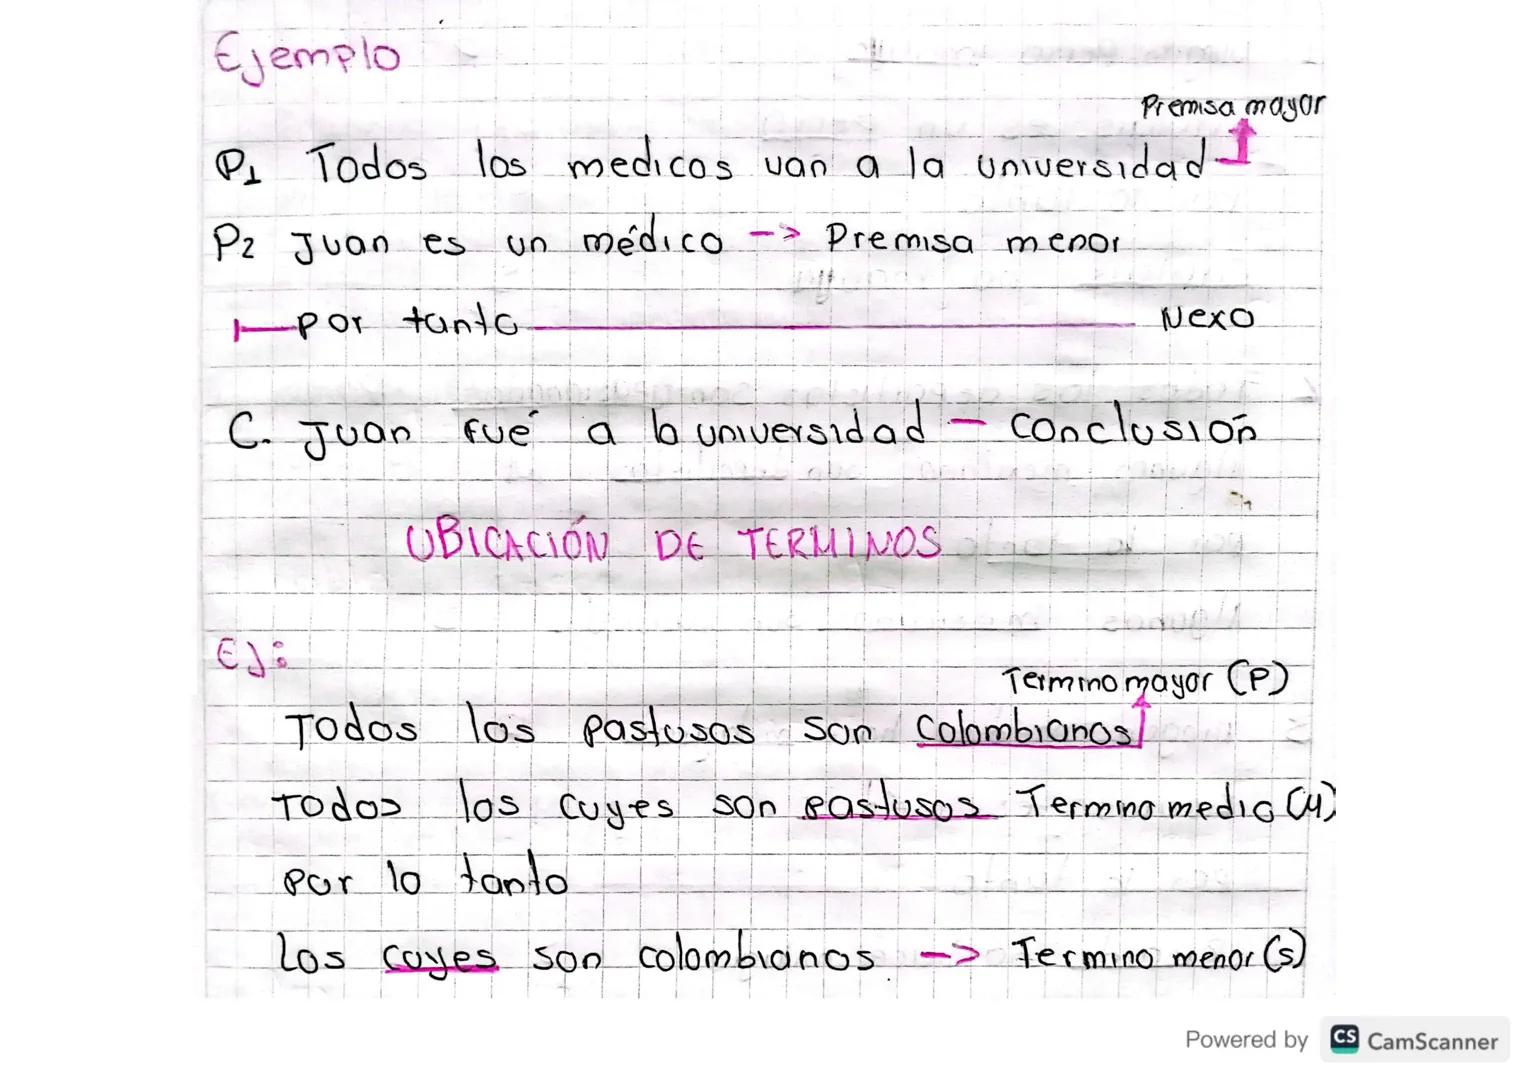 Ejemplo
Premisa mayor
P1 Todos los medicos van a la universidad
P2 Juan es un médico -> Premisa menor
por tanto Nexo
C. Juan fué a la universidad - Conclusión
UBICACIÓN DE TERMINOS
Ej:
Termino mayor (P)
Todos los pastusos son Colombianos
Todos los cuyes son pastusos Termino medio (M)
Por lo tanto
Los cuyes son colombianos -> Termino menor (s)
Powered by CS CamScanner